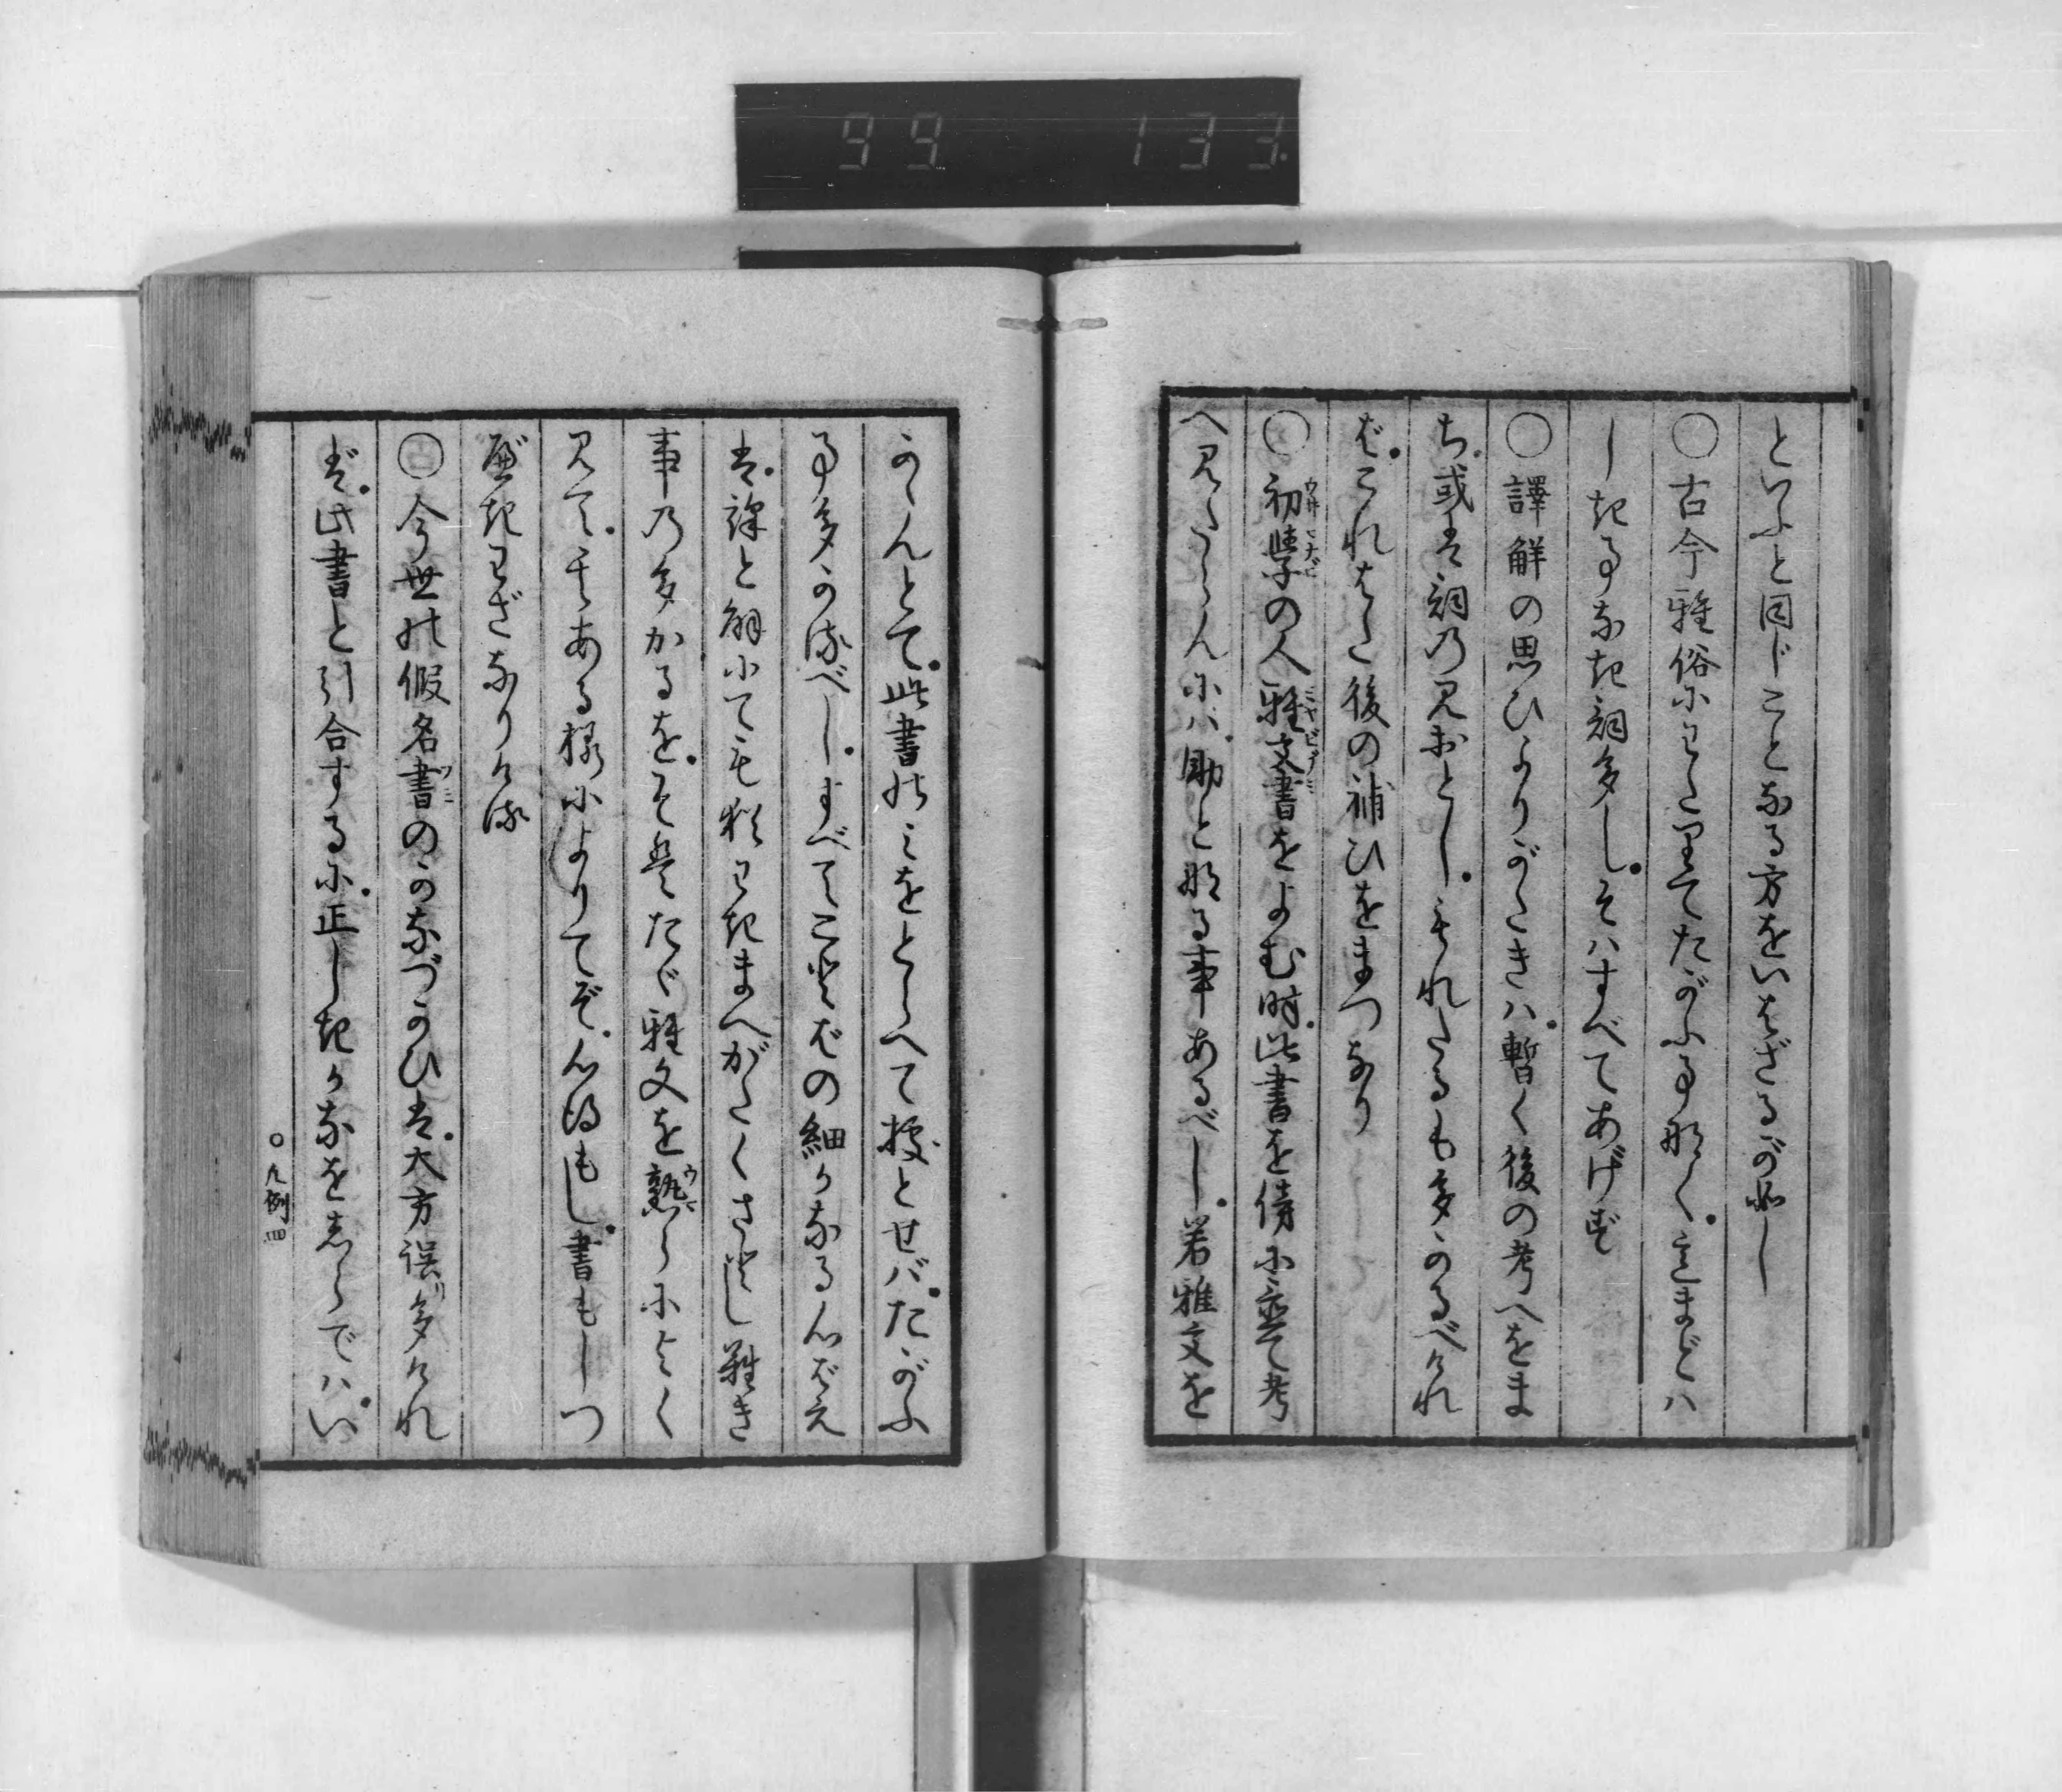 99 133
といふと同じことなる方をいはざるが如し
○古今雅俗にわたりてたがふ事なく。言まどハ
しき事なき詞多し。そハすべてあげず
○譯解の思ひよりがたきハ。暫く後の考へをま
ち。或は詞の見おとし。もれたるも多かるべけれ
ば。これはた後の補ひをまつなり
○初學の人雅文書をよむ時。此書を傍に置て考
へ見たらんにハ。助と成る事あるべし。若雅文を
かゝんとて。此書のミをとらへて據とせバ。たがふ
事多かるべし。すべてことばの細かなる心ばえ
は。譯と解にても猶わきまへがたくさとし難き
事の多かるを。そはたゞ雅文を熟らによく
見て。其ある様によりてぞ。心得もし。書もしつ
べきわざなりける
○今世の假名書のかなづかひは。大方誤り多けれ
ば。此書と引合するに。正しきかなをしらでハ。い
○凡例四